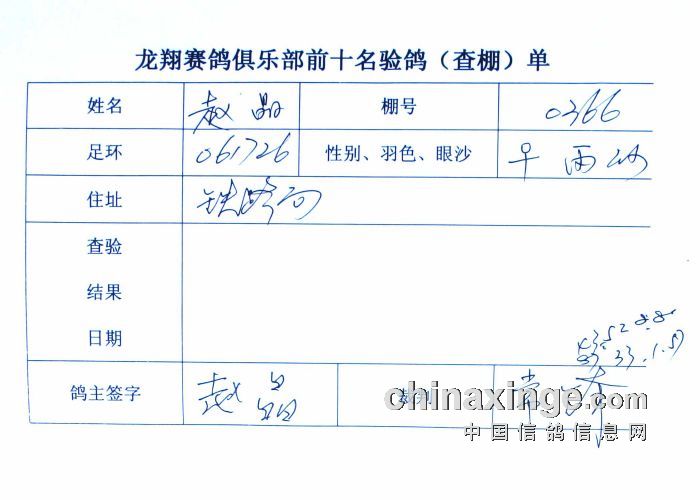 龙翔赛鸽俱乐部前十名验鸽（查棚）单
姓名 赵晶 棚号 0366
足环 061726 性别、羽色、眼沙 雨
住址 铁路
查验
结果
日期
鸽主签字 赵晶 裁判
chinaxinge.com
中国信鸽信息网